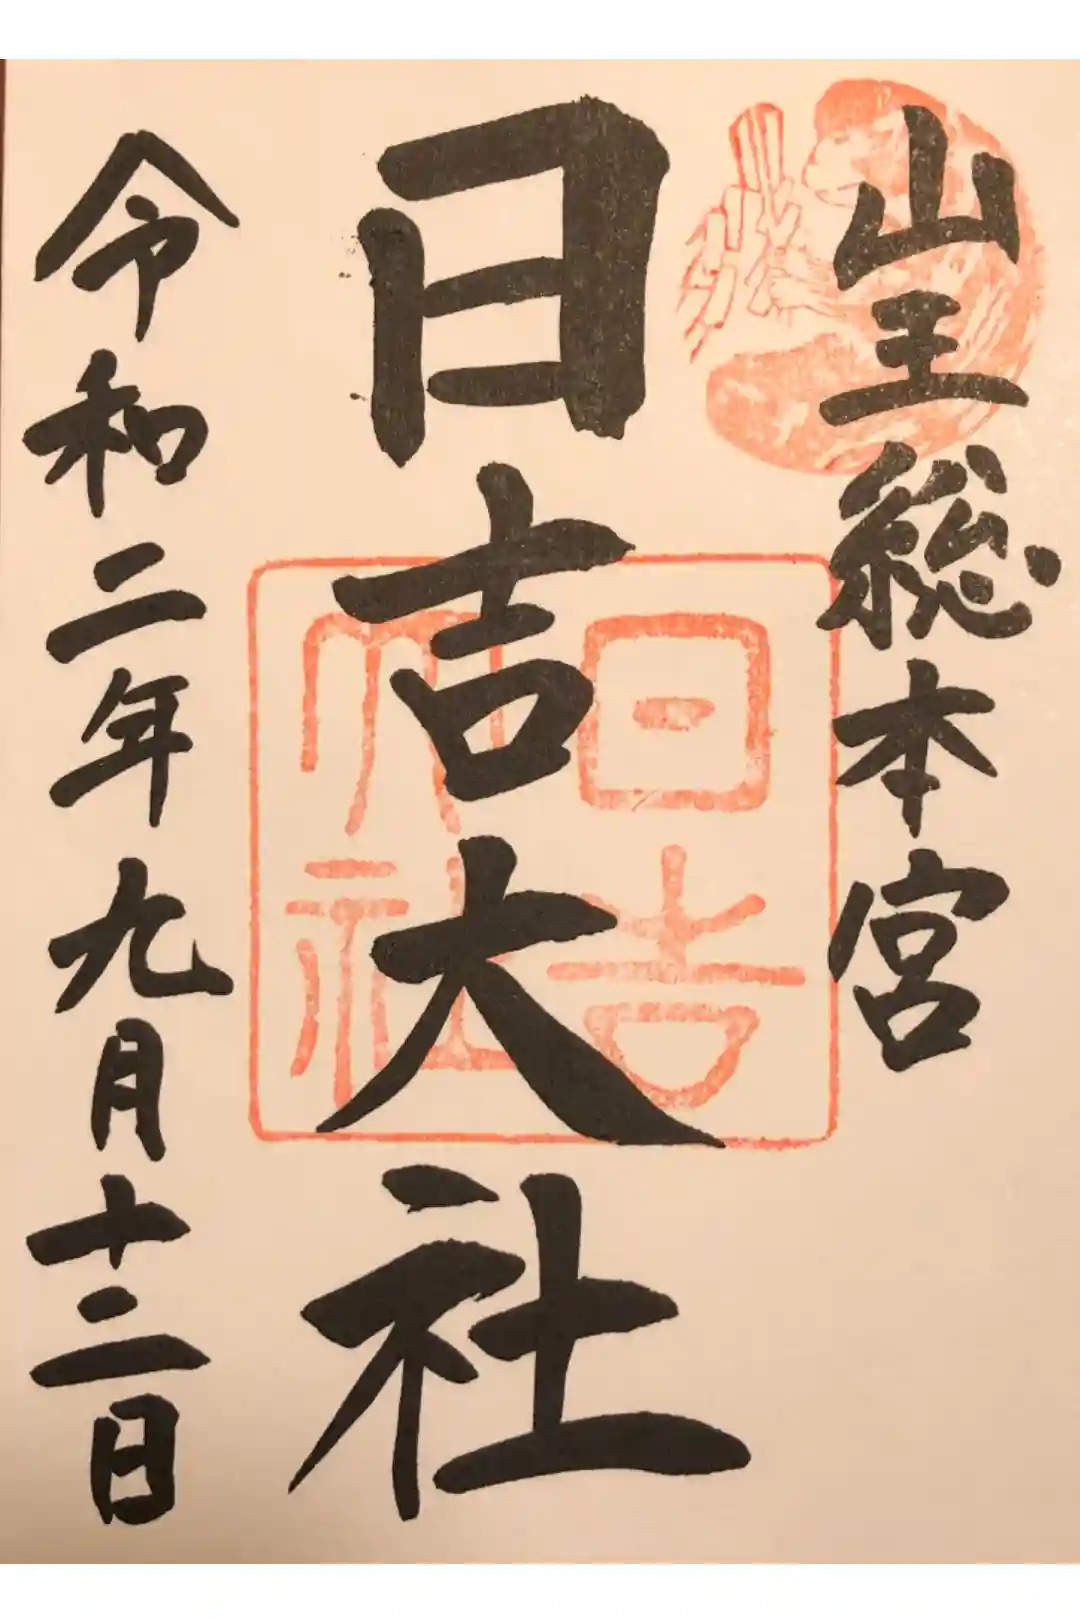 山王総本宮
日吉大社
日吉大社
令和二年九月十二日